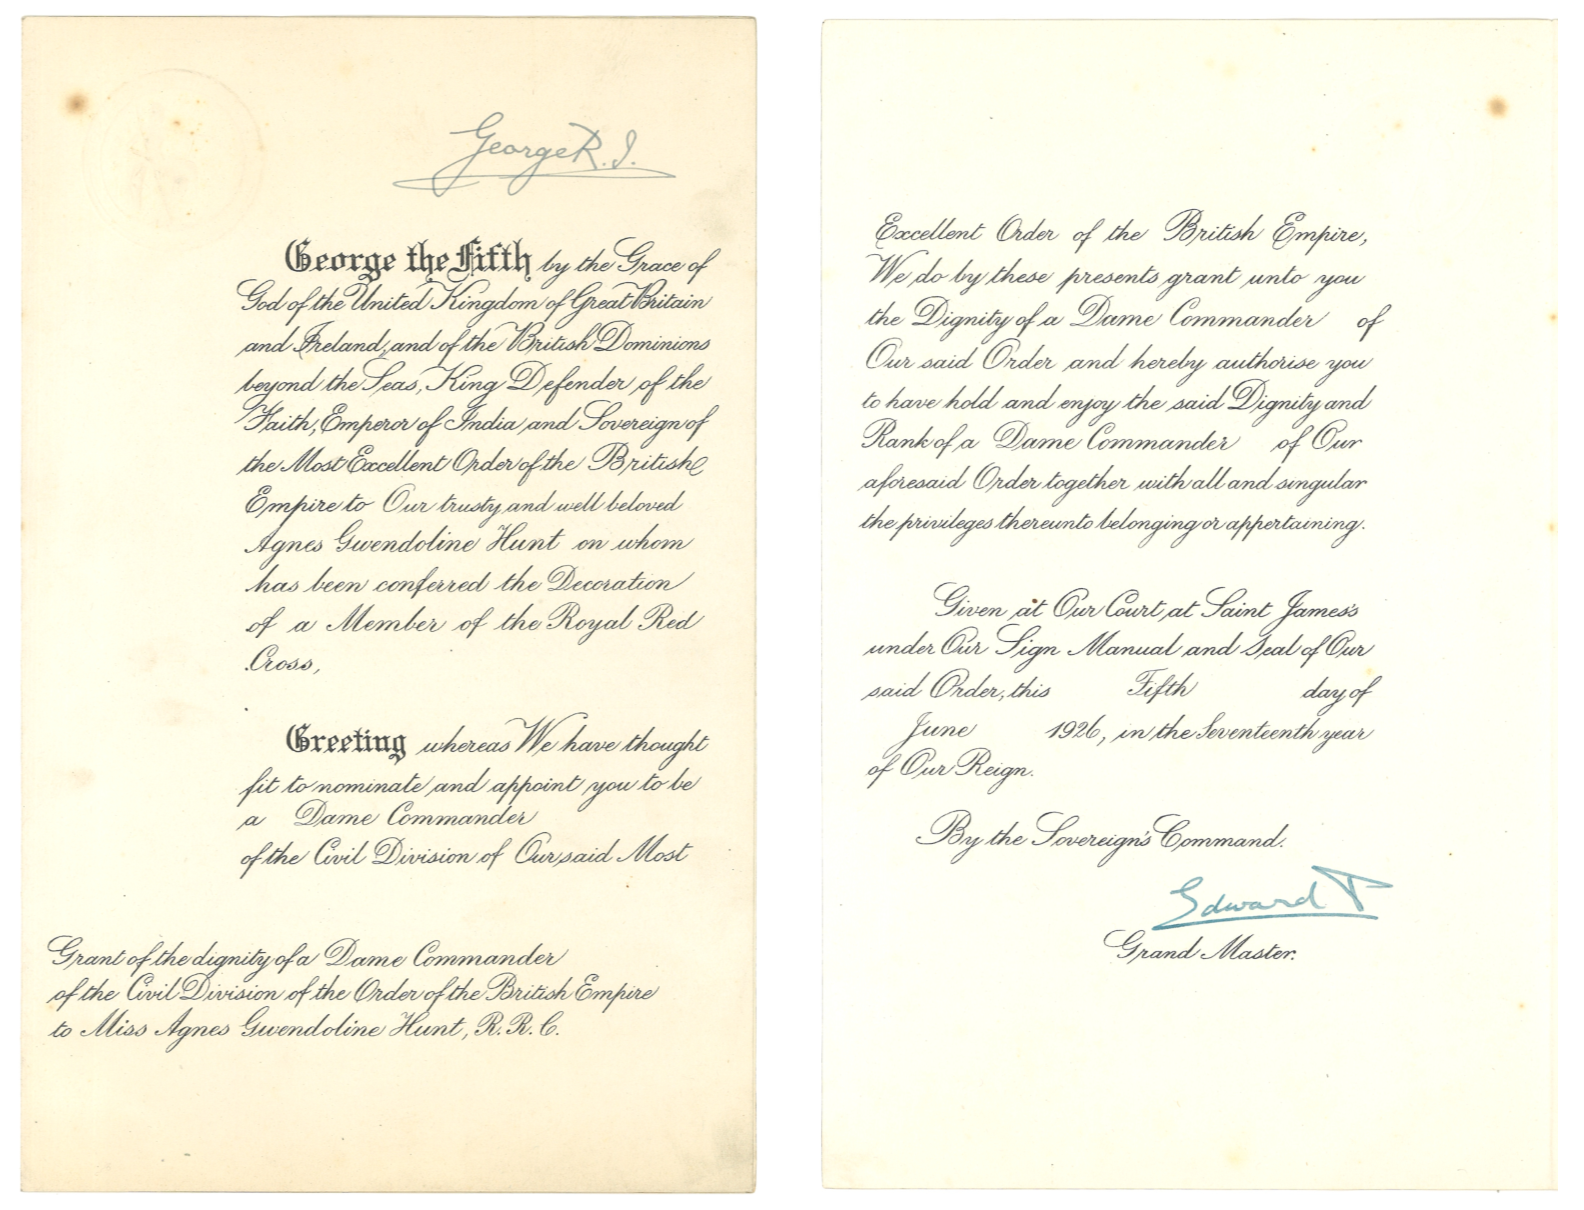 George R.I.
George the Fifth by the Grace of
God of the United Kingdom of Great Britain
and Ireland, and of the British Dominions
beyond the Seas, King Defender of the
Faith, Emperor of India and Sovereign of
the Most Excellent Order of the British
Empire to Our trusty and well beloved
Agnes Gwendoline Hunt on whom
has been conferred the Decoration
of a Member of the Royal Red
Cross,
Greeting whereas We have thought
fit to nominate and appoint you to be
a Dame Commander
of the Civil Division of Our said Most
Grant of the dignity of a Dame Commander
of the Civil Division of the Order of the British Empire
to Miss Agnes Gwendoline Hunt, R.R.C.
Excellent Order of the British Empire,
We do by these presents grant unto you
the Dignity of a Dame Commander of
Our said Order and hereby authorise you
to have hold and enjoy the said Dignity and
Rank of a Dame Commander of Our
aforesaid Order together with all and singular
the privileges thereunto belonging or appertaining.
Given at Our Court at Saint James's
under Our Sign Manual and Seal of Our
said Order, this Fifth day of
June 1926, in the Seventeenth year
of Our Reign.
By the Sovereign's Command.
Edward P
Grand Master.